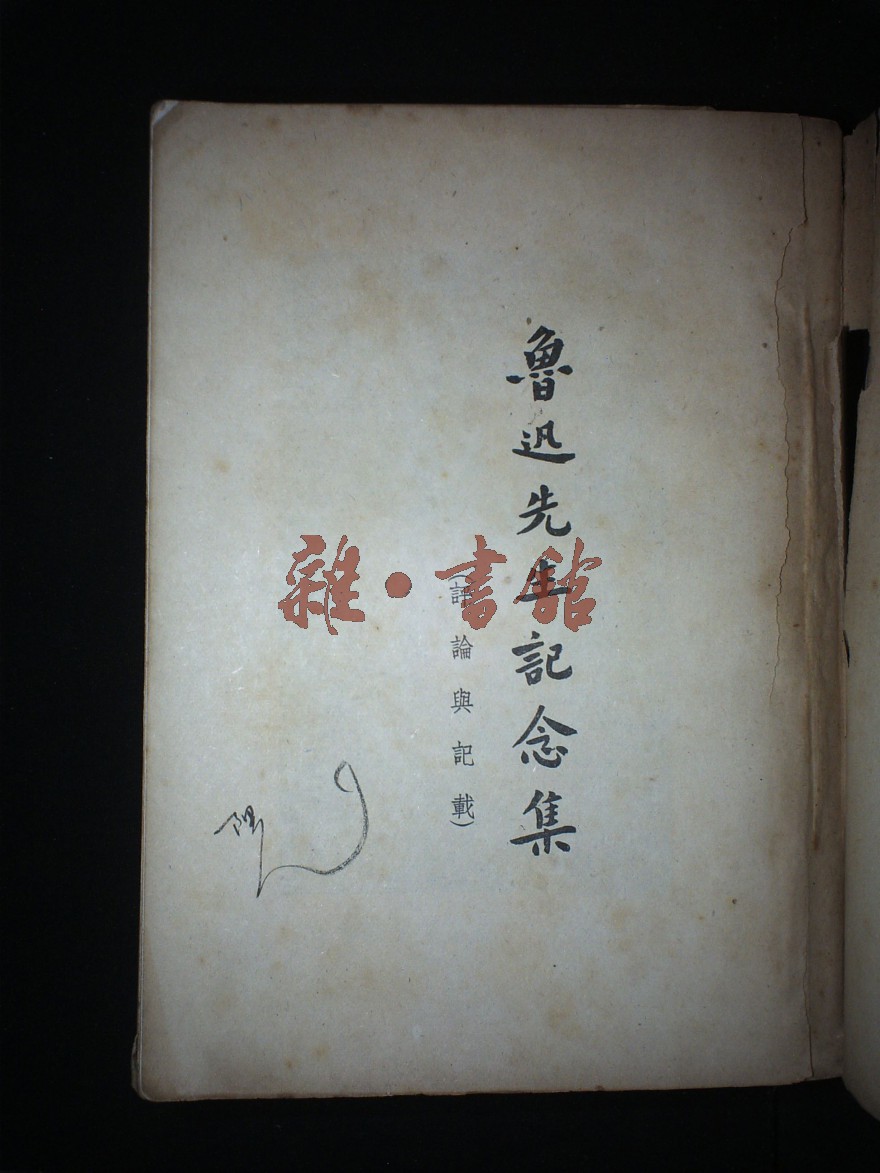 魯迅先生記念集
(評論與記載)
雜·書館